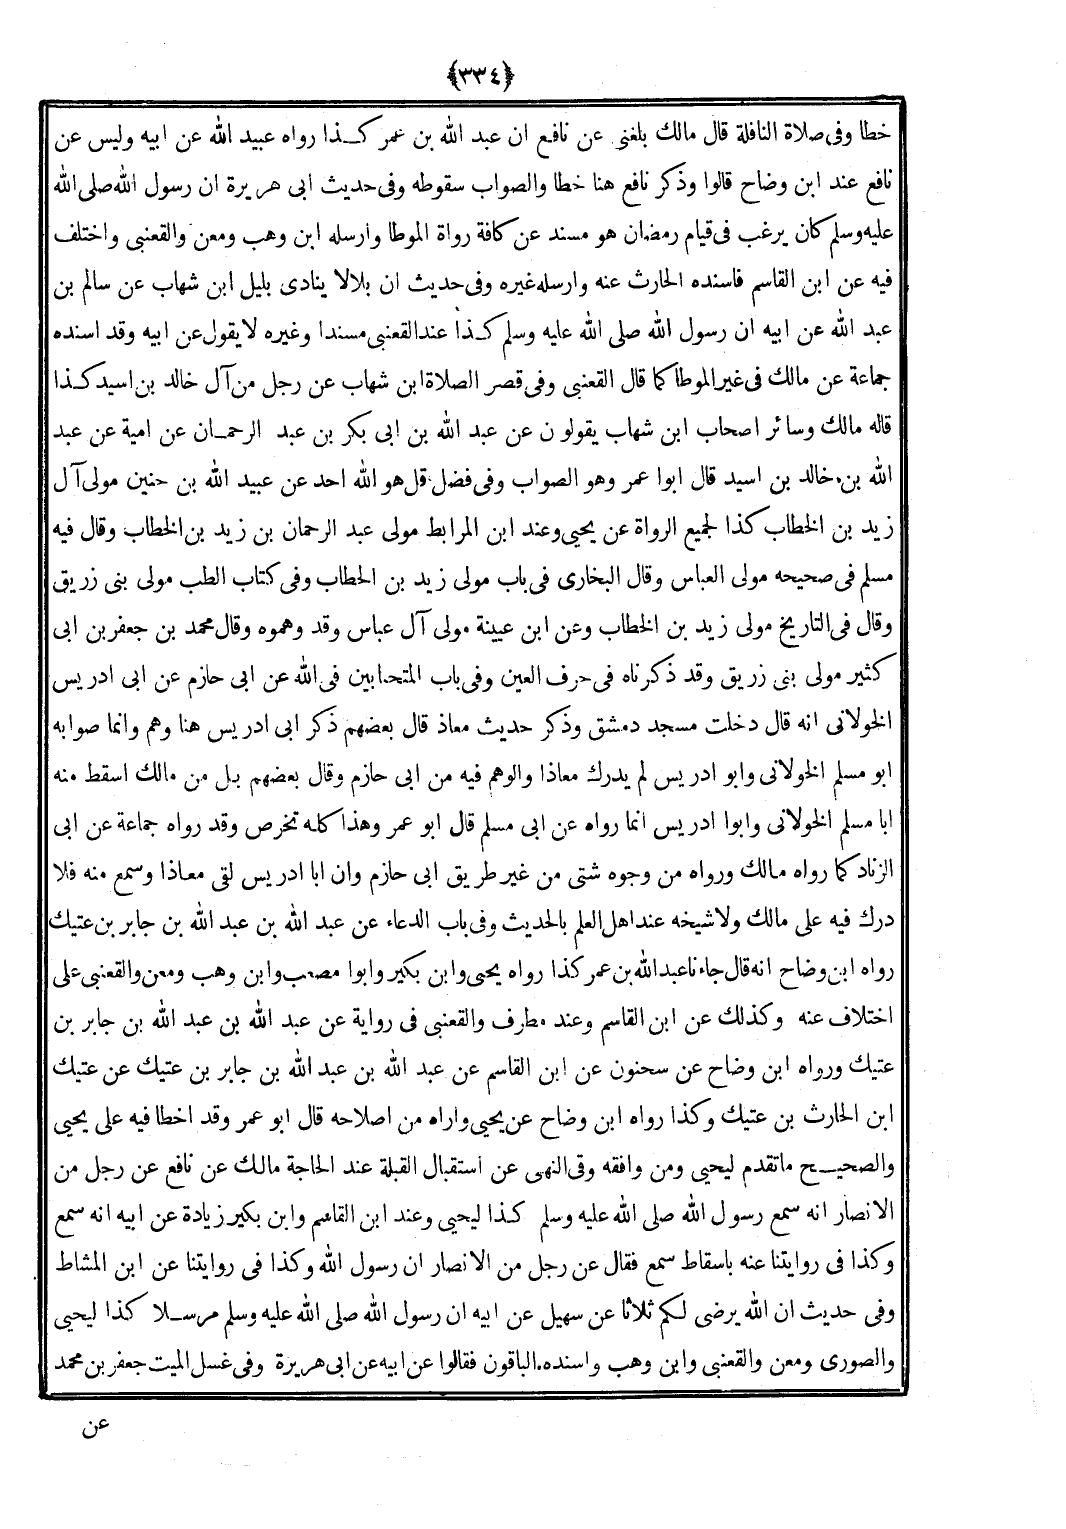 ﴿٣٣٤﴾
خطا وفى صلاة النافلة قال مالك بلغنى عن نافع ان عبد الله بن عمر كذا رواه عبيد الله عن ابيه وليس عن
نافع عند ابن وضاح قالوا وذكر نافع هنا خطا والصواب سقوطه وفى حديث ابى هريرة ان رسول الله صلى الله
عليه وسلم كان يرغب فى قيام رمضان هو مسند عن كافة رواة الموطا وارسله ابن وهب ومعن والقعنبى واختلف
فيه عن ابن القاسم فاسنده الحارث عنه وارسله غيره وفى حديث ان بلالا ينادى بليل ابن شهاب عن سالم بن
عبد الله عن ابيه ان رسول الله صلى الله عليه وسلم كذا عند القعنبى مسندا وغيره لا يقول عن ابيه وقد اسنده
جماعة عن مالك فى غير الموطا كما قال القعنبى وفى قصر الصلاة ابن شهاب عن رجل من آل خالد بن اسيد كذا
قاله مالك وسائر اصحاب ابن شهاب يقولون عن عبد الله بن ابى بكر بن عبد الرحمان عن امية عن عبد
الله بن خالد بن اسيد قال ابوا عمر وهو الصواب وفى فضل قل هو الله احد عن عبيد الله بن حنين مولى آل
زيد بن الخطاب كذا لجميع الرواة عن يحيى وعند ابن المرابط مولى عبد الرحمان بن زيد بن الخطاب وقال فيه
مسلم فى صحيحه مولى العباس وقال البخارى فى باب مولى زيد بن الحطاب وفى كتاب الطب مولى بنى زريق
وقال فى التاريخ مولى زيد بن الخطاب وعن ابن عيينة مولى آل عباس وقد وهموه وقال محمد بن جعفر بن ابى
كثير مولى بنى زريق وقد ذكرناه فى حرف العين وفى باب المتحابين فى الله عن ابى حازم عن ابى ادريس
الخولانى انه قال دخلت مسجد دمشق وذكر حديث معاذ قال بعضهم ذكر ابى ادريس هنا وهم وانما صوابه
ابو مسلم الخولانى وابو ادريس لم يدرك معاذا والوهم فيه من ابى حازم وقال بعضهم بل من مالك اسقط منه
ابا مسلم الخولانى وابوا ادريس انما رواه عن ابى مسلم قال ابو عمر وهذا كله تخرص وقد رواه جماعة عن ابى
الزناد كما رواه مالك ورواه من وجوه شتى من غير طريق ابى حازم وان ابا ادريس لقى معاذا وسمع منه فلا
درك فيه على مالك ولا شيخه عند اهل العلم بالحديث وفى باب الدعاء عن عبد الله بن عبد الله بن جابر بن عتيك
رواه ابن وضاح انه قال جاءنا عبد الله بن عمر كذا رواه يحيى وابن بكير وابوا مصعب وابن وهب ومعن والقعنبى على
اختلاف عنه وكذلك عن ابن القاسم وعند مطرف والقعنبى فى رواية عن عبد الله بن عبد الله بن جابر بن
عتيك ورواه ابن وضاح عن سحنون عن ابن القاسم عن عبد الله بن عبد الله بن جابر بن عتيك عن عتيك
ابن الحارث بن عتيك وكذا رواه ابن وضاح عن يحيى واراه من اصلاحه قال ابو عمر وقد اخطا فيه على يحيى
والصحيح ماتقدم ليحيى ومن وافقه وفى النهى عن استقبال القبلة عند الحاجة مالك عن نافع عن رجل من
الانصار انه سمع رسول الله صلى الله عليه وسلم كذا ليحيى وعند ابن القاسم وابن بكير زيادة عن ابيه انه سمع
وكذا فى روايتنا عنه باسقاط سمع فقال عن رجل من الانصار ان رسول الله وكذا فى روايتنا عن ابن المشاط
وفى حديث ان الله يرضى لكم ثلاثا عن سهيل عن ابيه ان رسول الله صلى الله عليه وسلم مرسلا كذا ليحيى
والصورى ومعن والقعنبى وابن وهب واسنده الباقون فقالوا عن ابيه عن ابى هريرة وفى غسل الميت جعفر بن محمد
عن